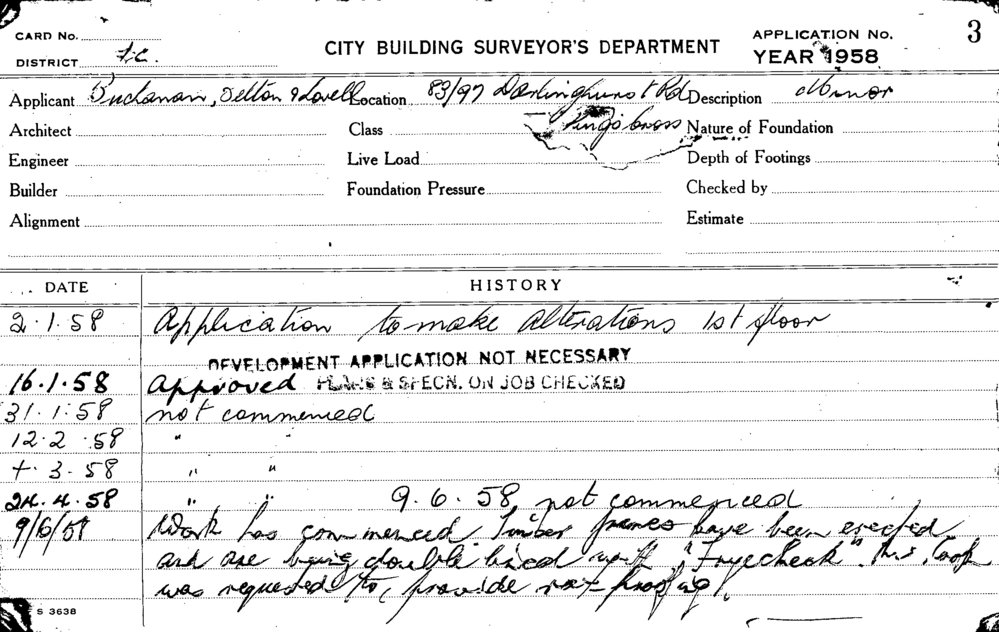 CARD No.
DISTRICT F.C.
CITY BUILDING SURVEYOR'S DEPARTMENT
APPLICATION No. 3
YEAR 1958
Applicant Buchanan, Felton & Lovell Location 83/97 Darlinghurst Rd Description Minor
Architect Class Kings Cross Nature of Foundation
Engineer Live Load Depth of Footings
Builder Foundation Pressure Checked by
Alignment Estimate
DATE HISTORY
2.1.58 Application to make alterations 1st floor
DEVELOPMENT APPLICATION NOT NECESSARY
16.1.58 approved PLANS & SPECN. ON JOB CHECKED
31.1.58 not commenced
12.2.58 " "
3.58 " "
24.4.58 " " 9.6.58 not commenced
9/6/58 Work has commenced. Timber frames have been erected
and are being double lined with "Fryecheck". Mr. Cook
was requested to provide rat-proofing.
S 3638